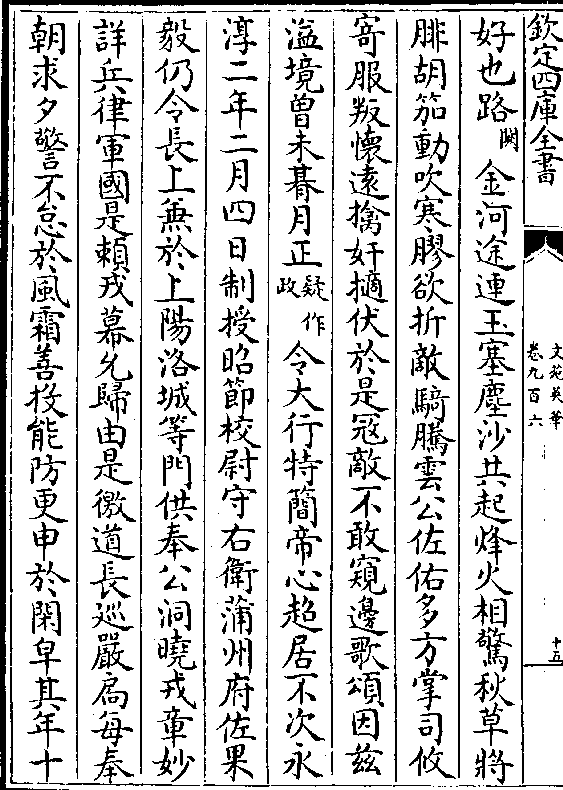 欽定四庫全書
文苑英華
卷九百六
十五
好也路闕金河途連玉塞塵沙共起烽火相驚秋草將
腓胡笳動吹寒膠欲折敵騎騰雲公佐佑多方掌司攸
寄服叛懷遠擒奸擿伏於是冦敵不敢窺邊歌頌因兹
溢境曽未朞月正疑作政令大行特簡帝心超居不次永
淳二年二月四日制授昭節校尉守右衛蒲州府佐果
毅仍令長上無於上陽洛城等門供奉公洞曉戎章妙
詳兵律軍國是頼戎幕允歸由是徼道長廵嚴扄每奉
朝求夕警不怠於風霜善投能防更申於閑皁其年十